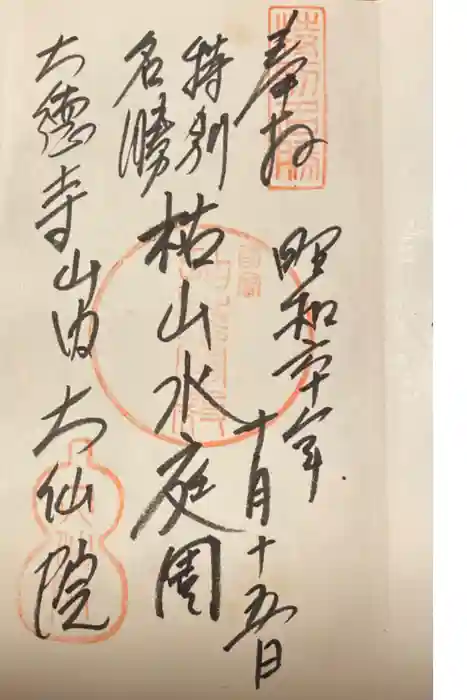 奉拝
昭和六十年
十月十五日
特別
名勝
枯山水庭園
大徳寺山内大仙院